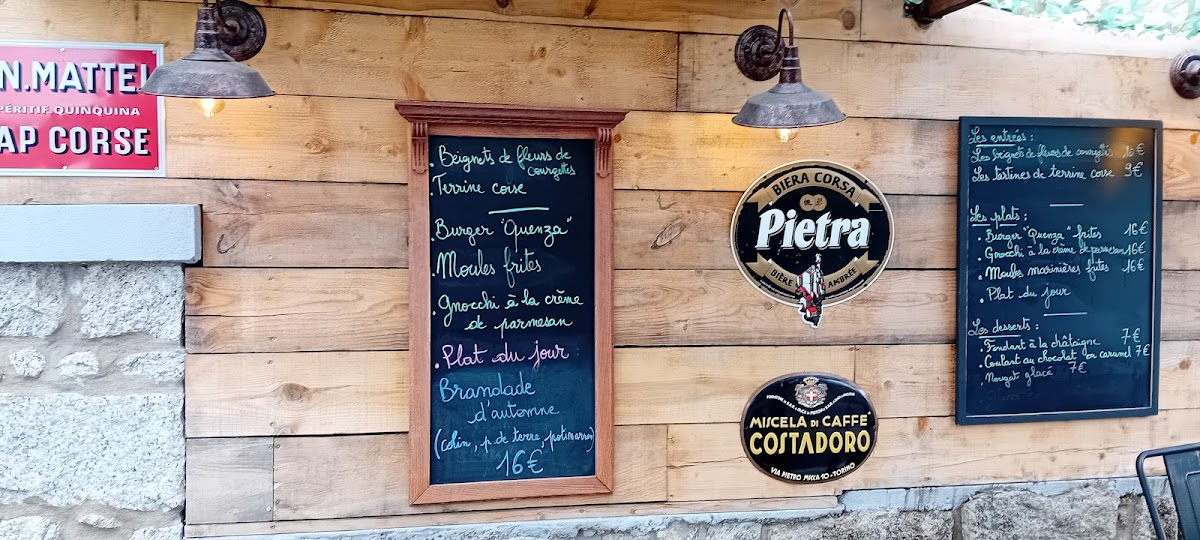 N.MATTEI
PÉRITIF.QUINQUINA
AP CORSE
. Beignets de fleurs de
courgettes
. Terrine corse
. Burger "Quenza"
. Moules frites
. Gnocchi à la crème
de parmesan
. Plat du jour :
Brandade
d'automne
(colin, p. de terre, potimarron)
16€
BIERA CORSA
Pietra
BIÈRE AMBRÉE
MISCELA DI CAFFÈ
COSTADORO
VIA PIETRO MICCA 10 - TORINO
Les entrées :
Les beignets de fleurs de courgettes 10 €
Les tartines de terrine corse 9€
Les plats :
. Burger "Quenza" frites 16€
. Gnocchi à la crème de parmesan 16€
. Moules marinières frites 16€
. Plat du jour
Les desserts :
. Fondant à la châtaigne 7€
. Coulant au chocolat ou caramel 7€
. Nougat glacé 7€